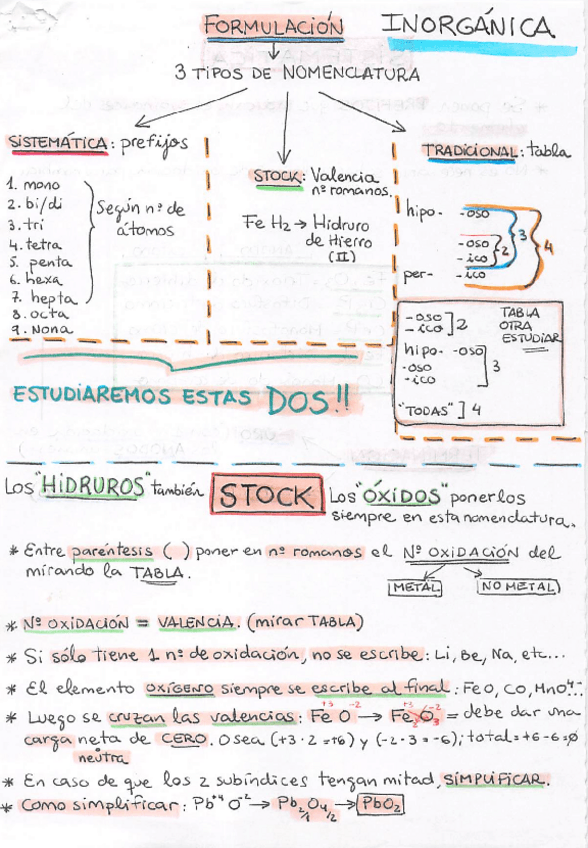 FORMULACIÓN INORGÁNICA
3 TIPOS DE NOMENCLATURA
SISTEMÁTICA: prefijos
1. mono
2. bi/di
3. tri
4. tetra
5. penta
6. hexa
7. hepta
8. octa
9. Nona
Según nº de
átomos
STOCK: Valencia
nº romanos.
FeH₂ → Hidruro
de Hierro
(II)
TRADICIONAL: tabla
hipo- -oso
-oso
-ico
per- -ico
2
3
4
-oso
-ico ] 2
hipo- -oso
-oso
-ico ] 3
"TODAS" ] 4
TABLA
OTRA
ESTUDIAR
ESTUDIAREMOS ESTAS DOS!!
Los "HIDRUROS" también STOCK Los "ÓXIDOS" ponerlos
siempre en esta nomenclatura.
* Entre paréntesis ( ) poner en nº romanos el Nº OXIDACIÓN del
mirando la TABLA.
METAL
NO METAL
* Nº OXIDACIÓN = VALENCIA. (mirar TABLA)
* Si sólo tiene 1 nº de oxidación, no se escribe: Li, Be, Na, etc...
* El elemento OXÍGENO siempre se escribe al final: FeO, CO, MnO...
* Luego se cruzan las valencias: Fe⁺³ O⁻² → Fe₂⁺³O₃⁻² = debe dar una
carga neta de CERO. O sea (+3·2=+6) y (-2·3=-6); total=+6-6=0
neutra
* En caso de que los 2 subíndices tengan mitad, SIMPLIFICAR.
* Como simplificar: Pb⁺⁴ O⁻² → Pb₂/₁ O₄/₂ → PbO₂